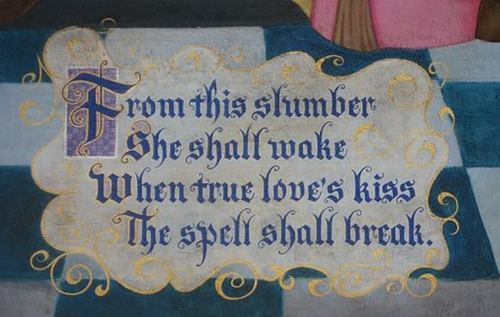 From this slumber
She shall wake
When true love's kiss
The spell shall break.